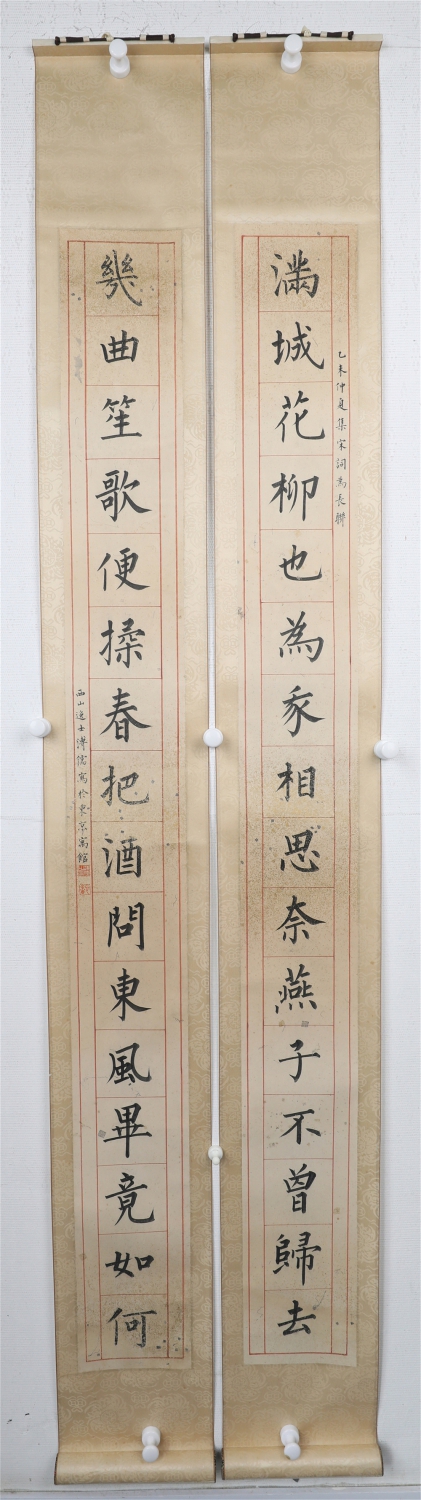 乙未仲夏集宋詞為長聯
滿城花柳也為家相思奈燕子不曾歸去
幾曲笙歌便操春把酒問東風畢竟如何
西山逸士溥儒寫於東京寓館